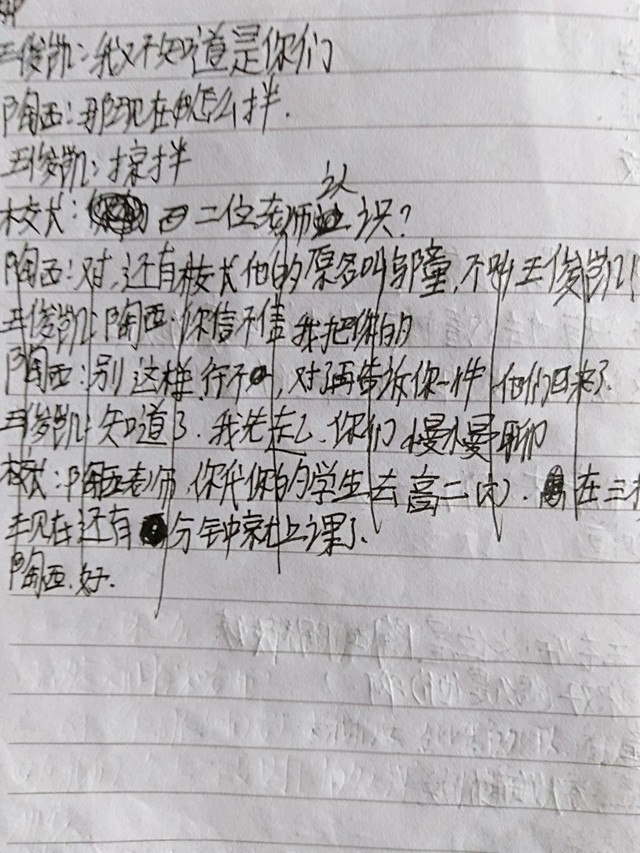 王俊凯:我又不知道是你们
陶西:那现在怎么拌.
王俊凯:凉拌
校长:二位老师认识?
陶西:对,还有校长他的原名叫邬童,不叫王俊凯!
王俊凯:陶西.你信不信我把你的
陶西:别这样,行不,对了再告诉你一件他们回来了.
王俊凯:知道了.我先走了.你们慢慢聊
校长:陶西老师,你代你的学生去高二(六).在三
现在还有分钟就上课了.
陶西.好.